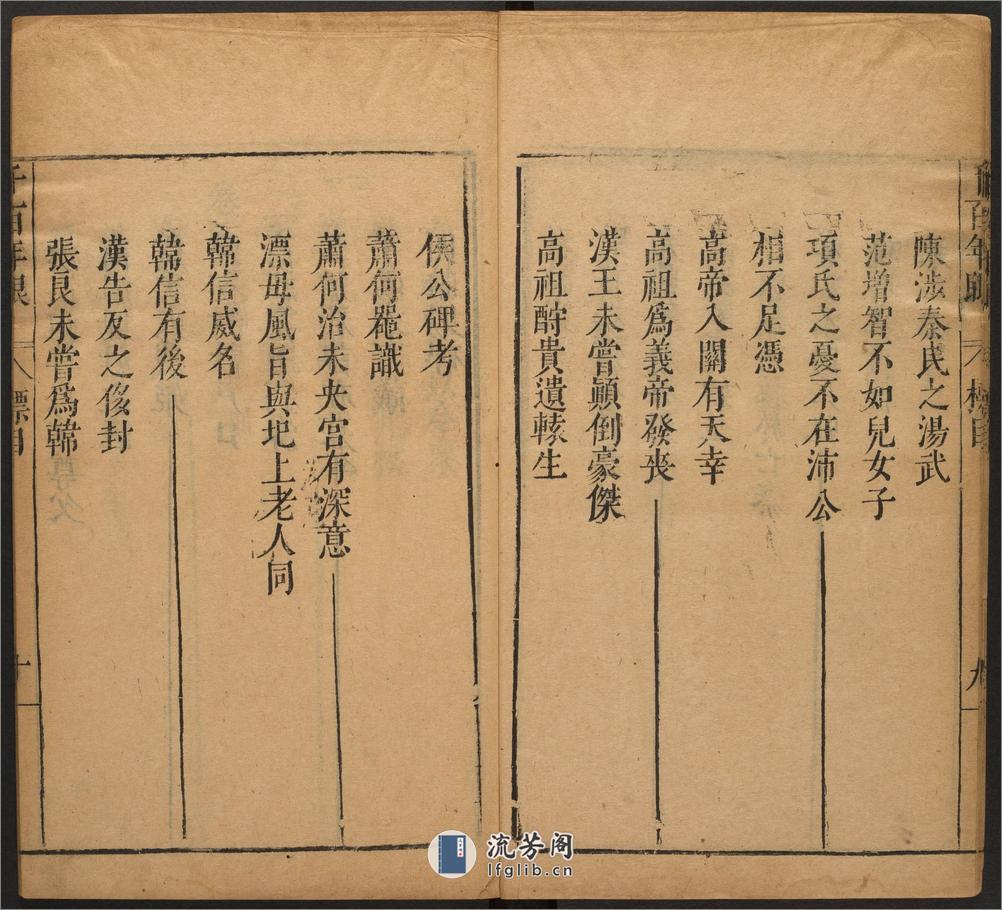 千百年眼 標目 九
陳涉秦民之湯武
范增智不如兒女子
項氏之憂不在沛公
相不足憑
高帝入關有天幸
高祖為義帝發喪
漢王未嘗顛倒豪傑
高祖酧貴遺轅生
侯公碑考
蕭何罷識
蕭何治未央宮有深意
漂母風旨與圯上老人同
韓信威名
韓信有後
漢告反之侈封
張良未嘗為韓
千百年眼 標目 十
流芳阁
lfglib.cn